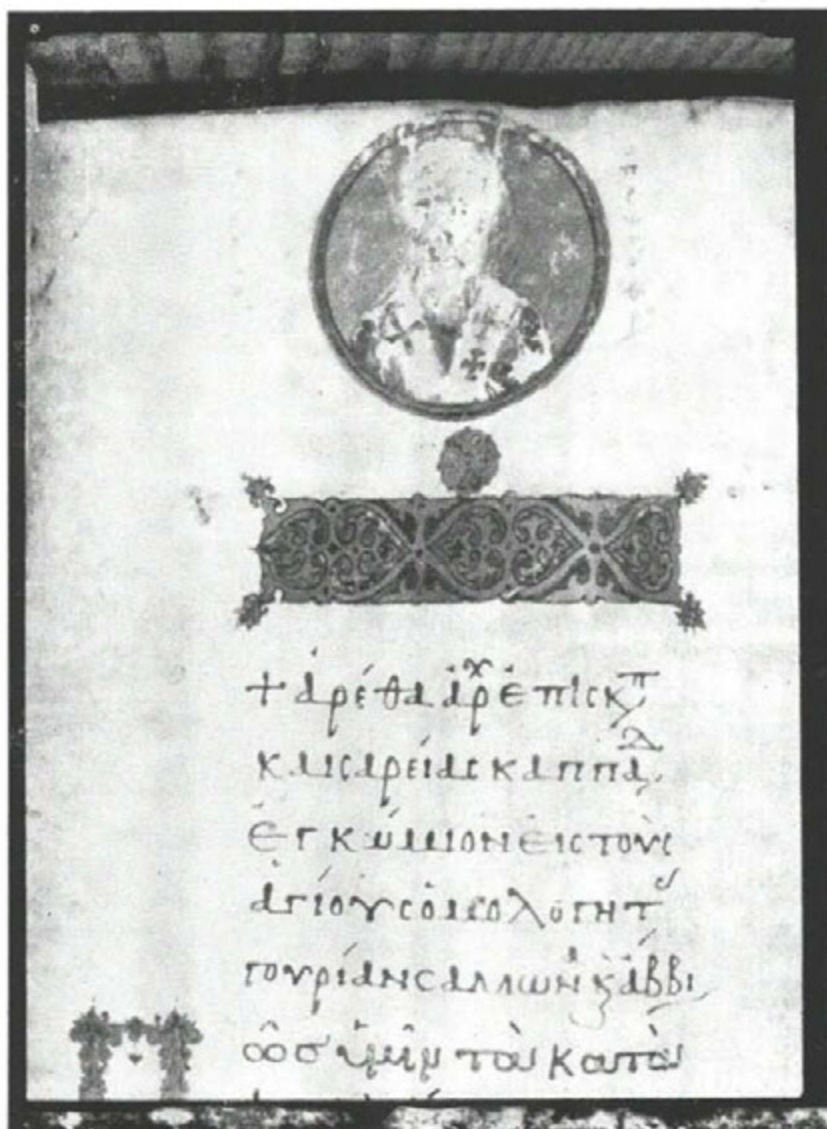 + ἀρέθα ἀρχ ἐπισκπ
καισαρείας καππαδ
ἐγκώμιον εἰς τοὺς
ἁγίους ὁμολογητ
γουρίαν σαμωνὰ κ ἄββι
ὅσ ἡμῖν τοῦ κατὰ